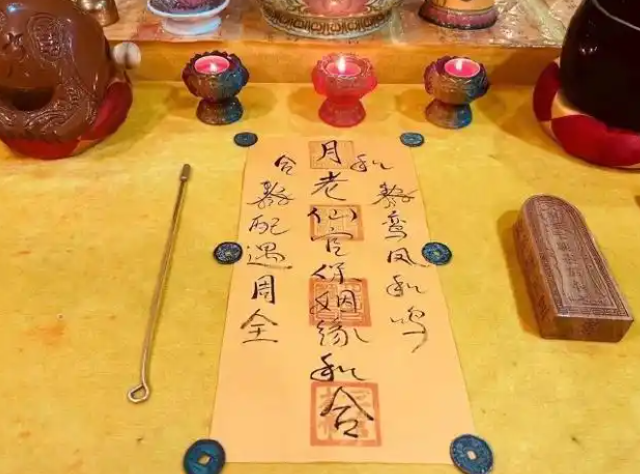 和鸾凤和鸣
月老仙官保姻缘和合
合配遇周全